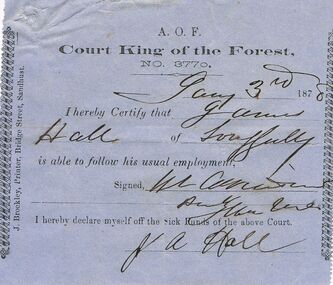 A. O. F.
Court King of the Forest,
NO. 3770.
Jany 3rd 1878
I hereby Certify that James
Hall of
is able to follow his usual employment,
Signed,
I hereby declare myself off the Sick Funds of the above Court.
J A Hall
J. Brockley, Printer, Bridge Street, Sandhurst.